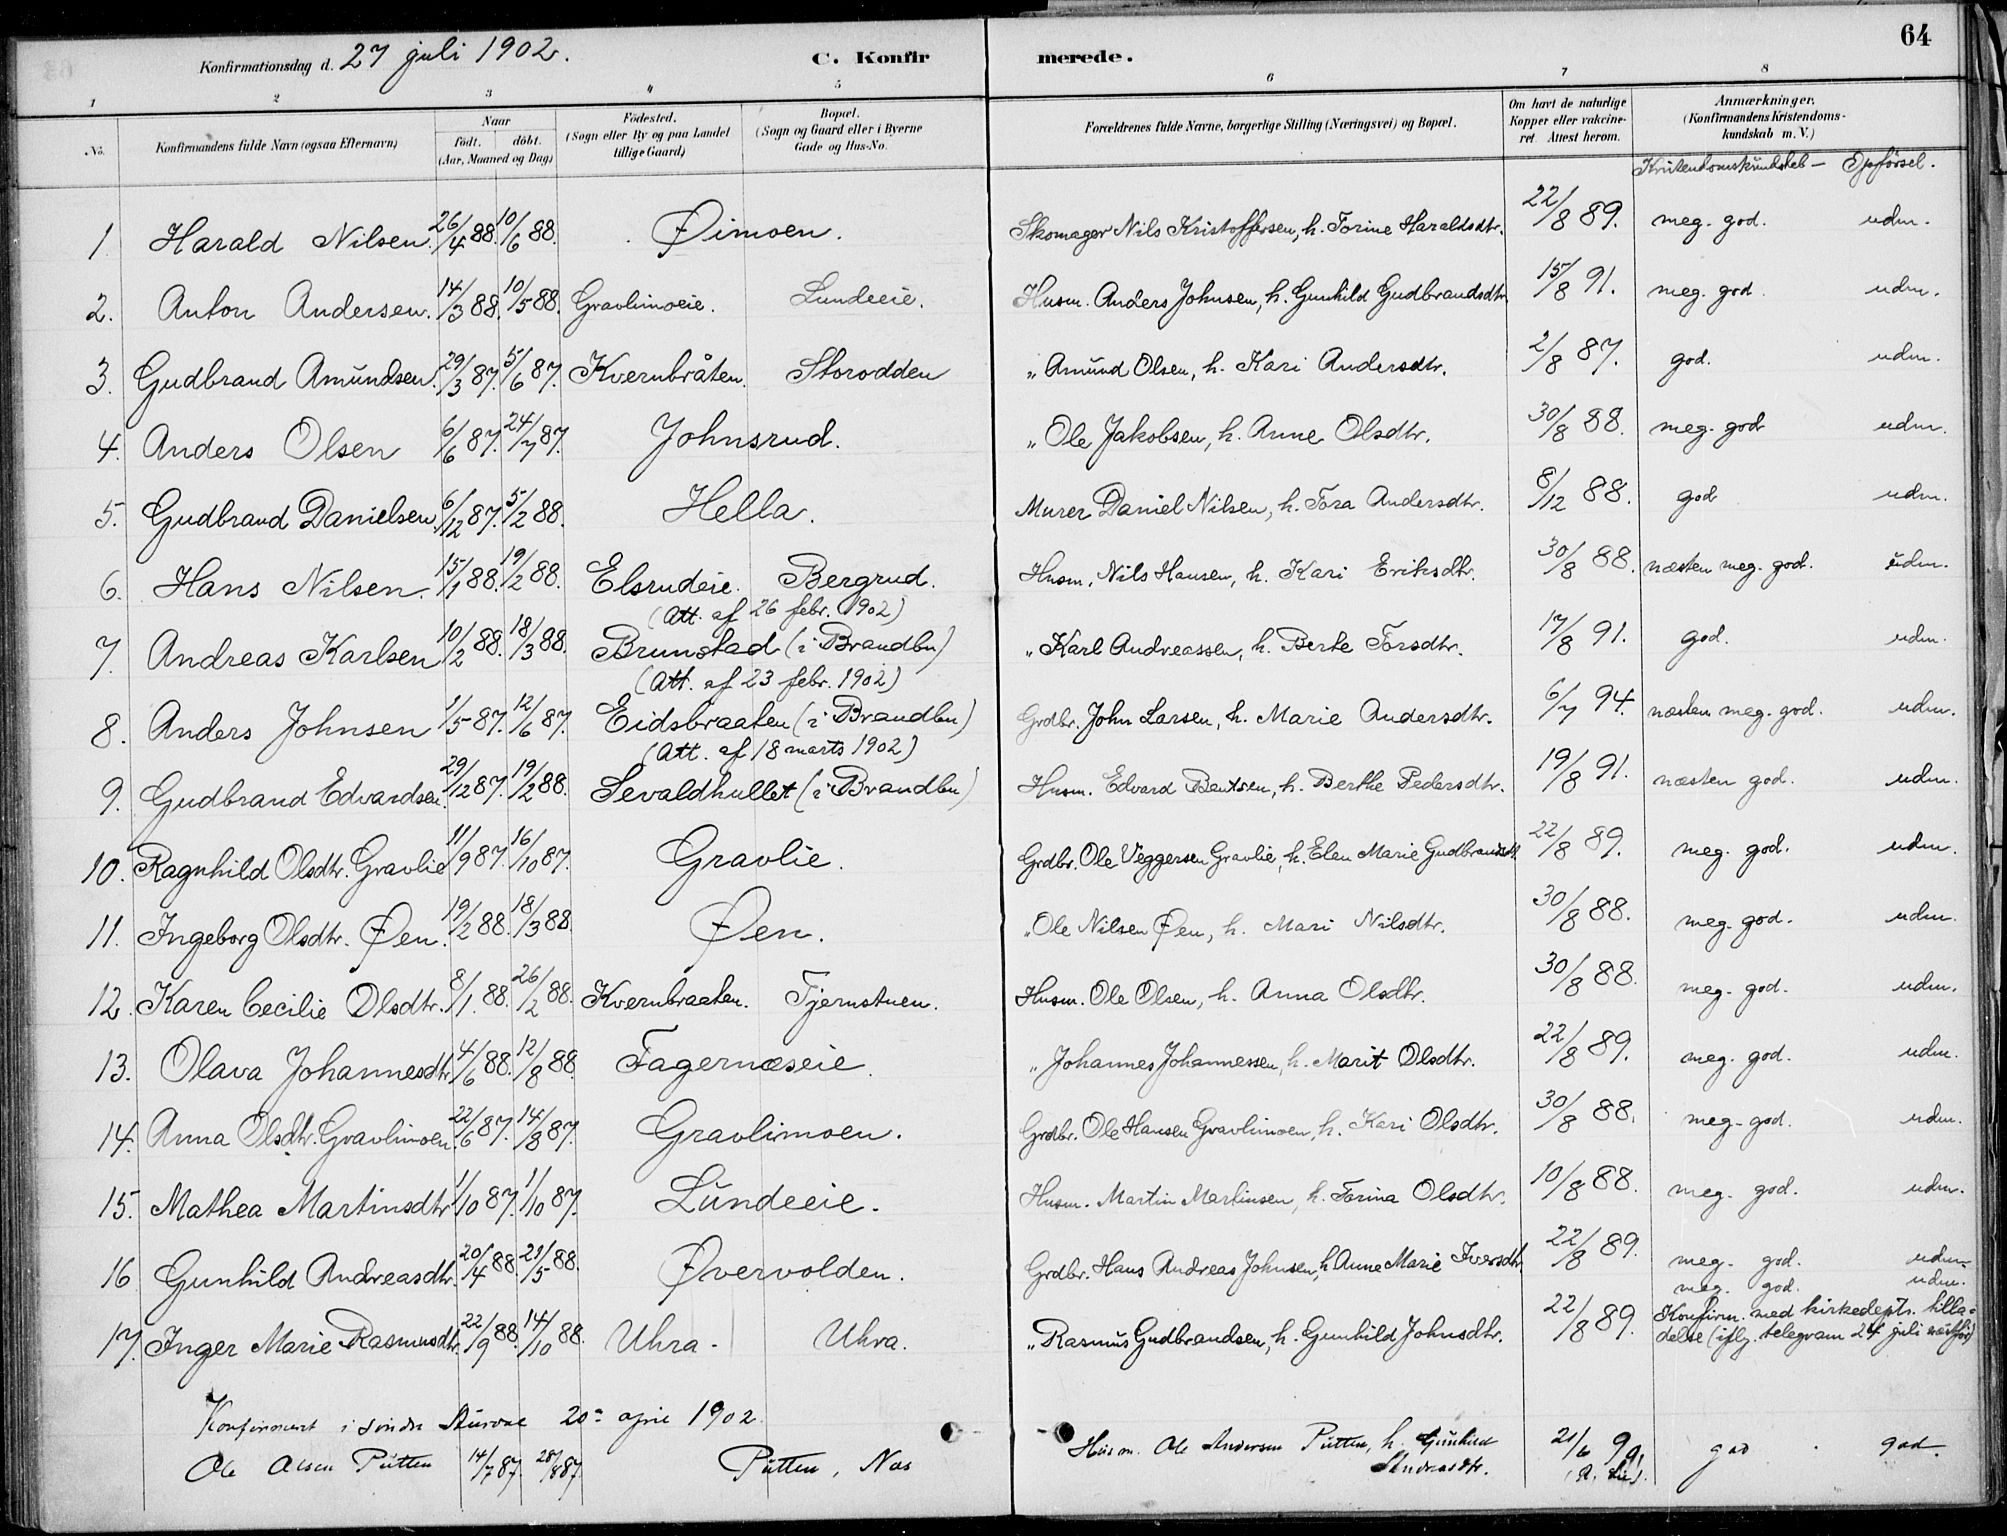 64
Konfirmationsdag d. 27 juli 1902. C. Konfirmerede.
1 2 3 4 5 6 7 8
No. Konfirmandens fulde Navn (ogsaa Efternavn) Naar født. døbt. (Aar, Maaned og Dag) Fødested. (Sogn eller By og paa Landet tillige Gaard) Bopæl. (Sogn og Gaard eller i Byerne Gade og Hus-No. Forældrenes fulde Navne, borgerlige Stilling (Næringsvei) og Bopæl. Om havt de naturlige Kopper eller vakcineret. Attest herom. Anmærkninger. (Konfirmandens Kristendomskundskab m. V.)
Kristendomskundskab – Opførsel.
1 Harald Nilsen. 26/4 88. 10/6 88. Øimoen. Skomager Nils Kristoffersen, h. Torine Haraldsdtr. 22/8 89. meg. god. udm.
2. Anton Andersen. 14/3 88. 10/5 88. Gravlimoeie. Lundeeie. Husm. Anders Johnsen, h. Gunhild Gudbrandsdtr. 15/8 91. meg. god. udm.
3. Gudbrand Amundsen. 29/3 87. 5/6 87. Kvernbråten. Skorodden „ Amund Olsen, h. Kari Andersdtr. 2/8 87. god. udm.
4. Anders Olsen 6/6 87. 24/7 87. Johnsrud. „ Ole Jakobsen, h. Anne Olsdtr. 30/8 88. meg. god udm.
5. Gudbrand Danielsen. 6/12 87. 5/2 88. Hella. Murer Daniel Nilsen, h. Tora Andersdtr. 8/12 88. god udm.
6. Hans Nilsen. 15/1 88. 19/2 88. Elsrudeie. Bergrud. Husm. Nils Hansen, h. Kari Eriksdtr. 30/8 88. næsten meg. god. udm.
(Att. af 26 febr. 1902)
7. Andreas Karlsen 10/2 88. 18/3 88. Brunstad (i Brandbu) „ Karl Andreassen, h. Berte Torsdtr. 17/8 91. god. udm.
(Att. af 23 febr. 1902)
8. Anders Johnsen 1/5 87. 12/6 87. Eidsbraaten (i Brandbu) Grdbr. John Larsen, h. Marie Andersdtr. 6/7 94. næsten meg. god. udm.
(Att. af 18 marts 1902)
9. Gudbrand Edvardsen. 29/12 87. 19/2 88. Sevaldhullet (i Brandbu) Husm. Edvard Bentsen, h. Berthe Pedersdtr. 19/8 91. næsten god. udm.
10. Ragnhild Olsdtr. Gravlie 11/9 87. 16/10 87. Gravlie. Grdbr. Ole Veggersen Gravlie, h. Elen Marie Gudbrandsdt. 22/8 89. meg. god. udm.
11. Ingeborg Olsdtr. Øen. 19/2 88. 18/3 88. Øen. „ Ole Nilsen Øen, h. Mari Nilsdtr. 30/8 88. meg. god. udm.
12. Karen Cecilie Olsdtr. 8/1. 88. 26/2 88. Kvernbraaten. Tjernstuen. Husm. Ole Olsen, h. Anna Olsdtr. 30/8 88. meg. god. udm.
13. Olava Johannesdtr. 4/6 88. 12/8 88. Fagernæseie. „ Johannes Johannessen, h. Marit Olsdtr. 22/8 89. meg. god. udm.
14. Anna Olsdtr. Gravlimoen. 22/6 87. 14/8 87. Gravlimoen. Grdbr. Ole Hansen Gravlimoen, h. Kari Olsdtr. 30/8 88. meg. god. udm.
15. Mathea Martinsdtr 1/10 87. 1/10 87. Lundeeie. Husm. Martin Martinsen, h. Torina Olsdtr. 10/8 88. meg. god. udm.
16 Gunhild Andreasdtr. 20/4 88. 21/5 88. Øvervolden. Grdbr. Hans Andreas Johnsen, h. Anne Marie Iversdtr. 22/8 89. meg. god. udm.
meg. god. udm.
17. Inger Marie Rasmusdtr. 22/9 88. 14/10 88. Uhra. Uhra. „ Rasmus Gudbrandsen, h. Gunhild Johnsdtr. 22/8 89. Konfirm. med kirkedepts. tilladelse (iflg. telegram 24 juli
Konfirmert i søndre 20de april 1902.
Ole Olsen Pütten 14/7 87. 28/8 87. Pütten, Nas Husm. Ole Andersen Pütten, h. Gunhild Andersdtr. 21/6 99. god. god.